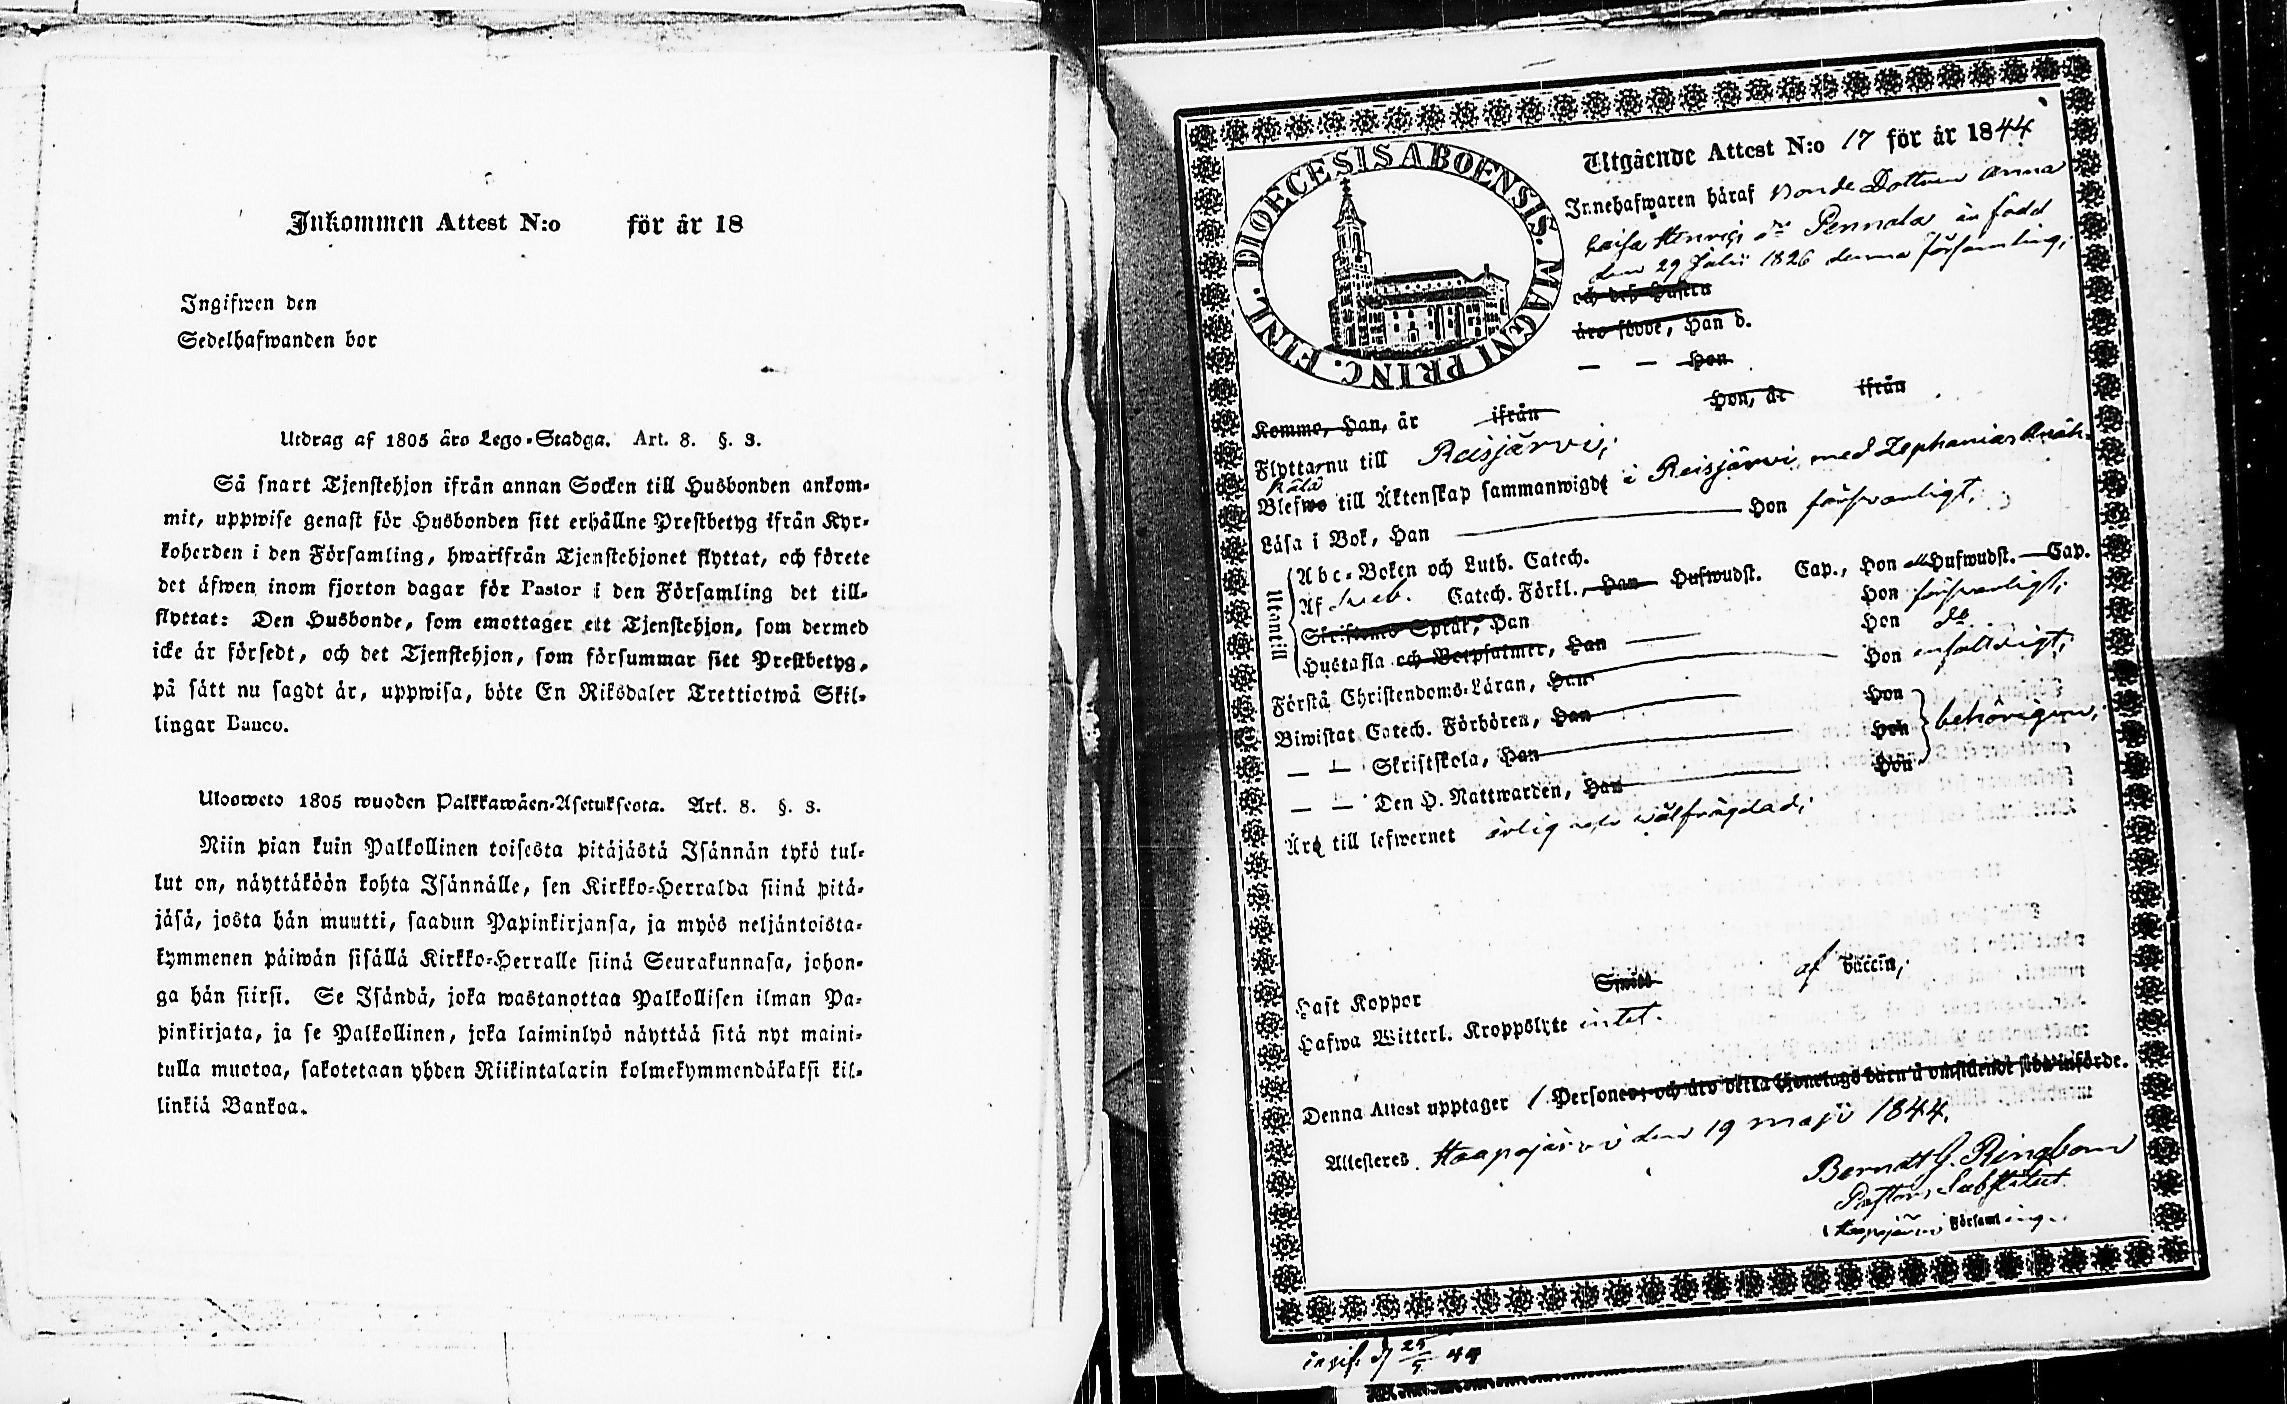 Inkommen Attest N:o för år 18
Ingifwen den
Sedelhafwanden bor
Utdrag af 1805 års Lego-Stadga. Art. 8. §. 3.
Så snart Tjenstehjon ifrån annan Socken till Husbonden ankom-
mit, uppwise genast för Husbonden sitt erhållne Prestbetyg ifrån Kyr-
koherden i den Församling, hwarifrån Tjenstehjonet flyttat, och förete
det äfwen inom fjorton dagar för Pastor i den Församling det till-
flyttat: Den Husbonde, som emottager ett Tjenstehjon, som dermed
icke är försedt, och det Tjenstehjon, som försummar sitt Prestbetyg,
på sätt nu sagdt är, uppwisa, böte En Riksdaler Trettiotwå Skil-
lingar Banco.
Uloosweto 1805 wuoden Palkkawäen-Asetuksesta. Art. 8. §. 3.
Niin pian kuin Palkollinen toisesta pitäjästä Isännän tykö tul-
lut on, näyttäköön kohta Isännälle, sen Kirkko-Herralda siinä pitä-
jäsä, josta hän muutti, saadun Papinkirjansa, ja myös neljäntoista-
kymmenen päiwän sisällä Kirkko-Herralle siinä Seurakunnasa, johon-
ga hän siirsi. Se Isändä, joka wastanottaa Palkollisen ilman Pa-
pinkirjata, ja se Palkollinen, joka laiminlyö näyttää sitä nyt maini-
tulla muotoa, sakotetaan yhden Riikintalarin kolmekymmendäkaksi kil-
linkiä Bankoa.
DIOECESIS ABOENSIS. MAGNI PRINC. FINL.
Utgående Attest N:o 17 för år 1844
Innehafwaren häraf Bonde Dottren Anna
Caisa Henrics dr Pennala är född
den 29 Julii 1826 denna församling;
och deß Hustru
äro födde, Han d.
— — Hon
Komme, Han, är ifrån Hon, är ifrån
Flyttar nu till Reisjärvi;
Blefwo till Äktenskap sammanwigde i Reisjärvi med Zephanias Knåk-
kälä
Läsa i Bok, Han Hon försvarligt;
Utantill
Abc-Boken och Luth. Catech.
Af Sveb. Catech. Förkl., Han Hufwudst. Cap., Hon all Hufwudst. Cap.
Skriftenes Språk, Han Hon försvarligt;
Hustafla och Botpsalmer, Han Hon do
Förstå Christendoms-Läran, Han Hon enfalldigt;
Biwistat Catech. Förhören, Han Hon
— — Skriftskola, Han Hon behörigen;
— — Den H. Nattwarden, Han Hon
Äro till lefwernet ärlig och wälfrägdad;
Haft Koppor Smitt af Vaccin;
Hafwa Witterl. Kroppslyte intet.
Denna Attest upptager 1 Personer: och äro detta Hjonelags barn å omstående sida införde.
Attesteres Haapajärvi den 19 Maji 1844.
Berndt G. Ringbom
Pastors Substitut
i Haapajärvi Församling.
ingif. d 25/5 44